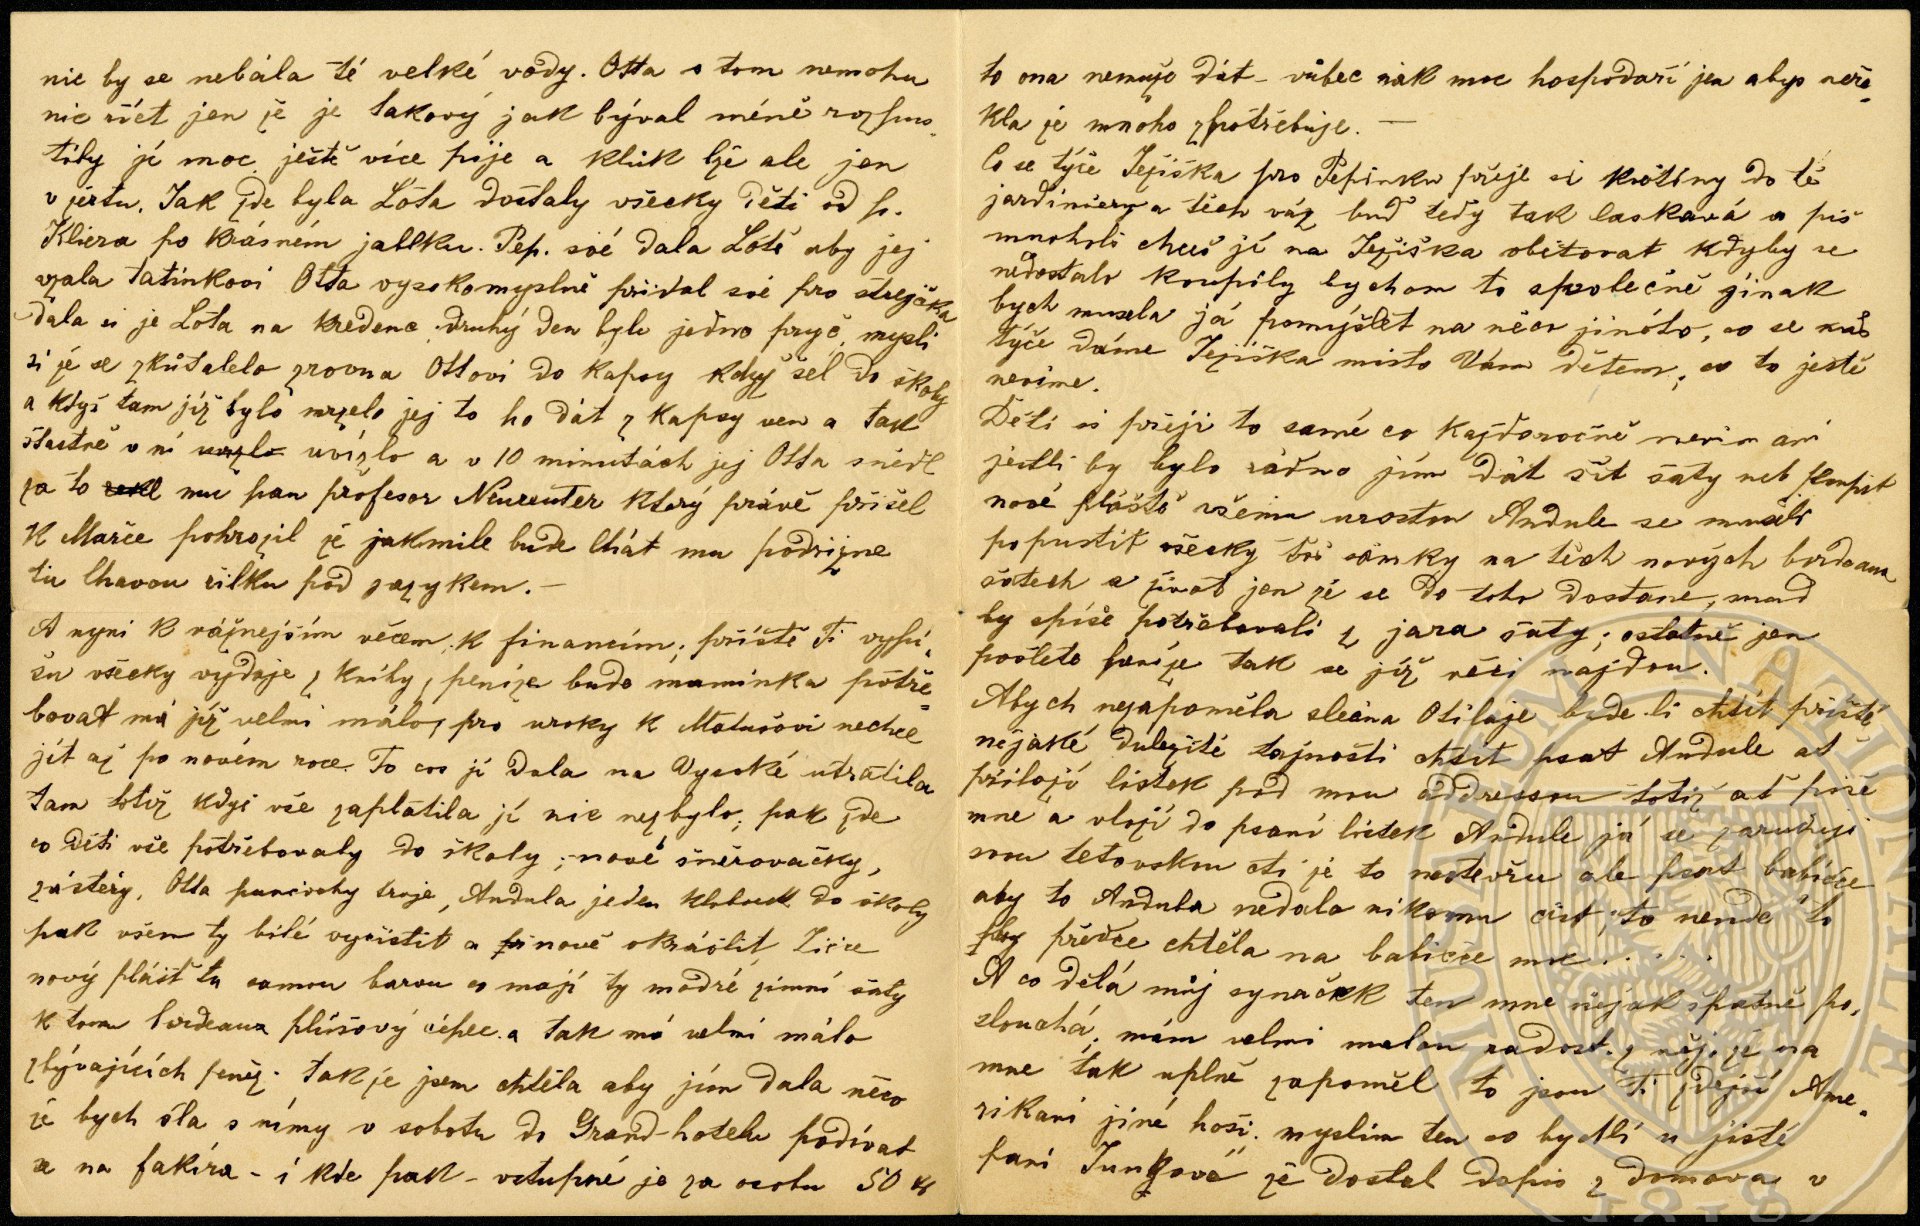 nic by se nebála té velké vody. Otta o tom nemohu
nic říct jen že je takový jak býval méně rozpus-
tilý jí moc ještě více pije a kluk lže ale jen
v žertu. Jak zde byla Lóta dostaly všecky děti od p.
Kliera po krásném jablku. Pep. své dala Lótě aby jej
vzala tatínkovi Otta vysokomyslně přidal své pro strejčka
dala si je Lóta na kredenc druhý den bylo jedno pryč, myslí
si že se zkutalelo zrovna Ottovi do kapsy když šel do školy
a když tam již bylo nezelo jej to ho dát z kapsy ven a tak
šťastně v ní uvízlo a v 10 minutách jej Otta snědl
za to mu pan profesor Neureuter který právě přišel
k Mařce pohrozil že jakmile bude lhát mu podřízne
tu lhavou žilku pod jazykem. —
A nyní k vážnejším věcem, k financím; příště Ti vypí-
šu všecky výdaje z knihy, peníze bude maminka potře-
bovat má již velmi málo, pro uroky k Matušovi nechce
jít až po novém roce. To co jí dala na Vysoké utratila
tam totiž když vše zaplatila jí nic nezbylo; pak zde
co děti vše potřebovaly do školy; nové šněrovačky,
zástěry, Otta punčochy troje, Andula jeden klobouk do školy
pak všem ty bílé vyčistit a nově okrášlit Lície
nový plášť tu samou barvu co mají ty modré zimní šaty
k tomu bordeaux plišový čepec a tak má velmi málo
zbývajících peněz. Takže jsem chtěla aby jim dala něco
že bych šla s nimy v sobotu do Grand-hotelu podívat
se na fakíra - i kde pak - vstupné je za osobu 50 kr
to ona nemuže dát - vůbec nák moc hospodaří jen abys neře-
kla že mnoho zpotřebuje. —
Co se týče Ježíška pro Pepinku přeje si květiny do té
jardiniery a těch váz buď tedy tak laskavá a piš
mnoholi chceš jí na Ježíška obětovat kdyby se
nedostalo koupily bychom to společně jinak
bych musela já pomýšlet na něco jinóto, co se nás
týče dáme Ježíška místo Vám dětem, co to ještě
nevíme.
Děti si přejí to samé co každoročně nevím ani
jestli by bylo rádno jim dát šít šaty neb koupit
nové pláště všemu urostou Andule se museli
popustit všecky tři sámky na těch nových bordeaux
šatech a život jen že se do toho dostane, snad
by spíše potřebovali z jara šaty; ostatně jen
pošlete peníze tak se již věci najdou.
Abych nezapoměla slečna Otilaje bude li chtít příště
nějaké duležité tajnosti chtít psat Andule at
přiloží lístek pod mou addressou totiž ať píše
mne a vloží do psaní lístek Andule já se zaručuji
svou tetovskou ctí že to neotevřu ale psat babičce
aby to Andula nedala nikomu číst, to nende to
by předce chtěla na babičce moc . . . . .
A co dělá můj synáček ten mne nějak špatně po-
slouchá, mám velmi malou radost z něj, že na
mne tak uplně zapoměl to jsou Ti zdejší Ame-
rikani jiné hoši. myslím ten co bydlí u jisté
paní Jungové že dostal dopis z domova v
MUSAEUM NATIONALE
1818